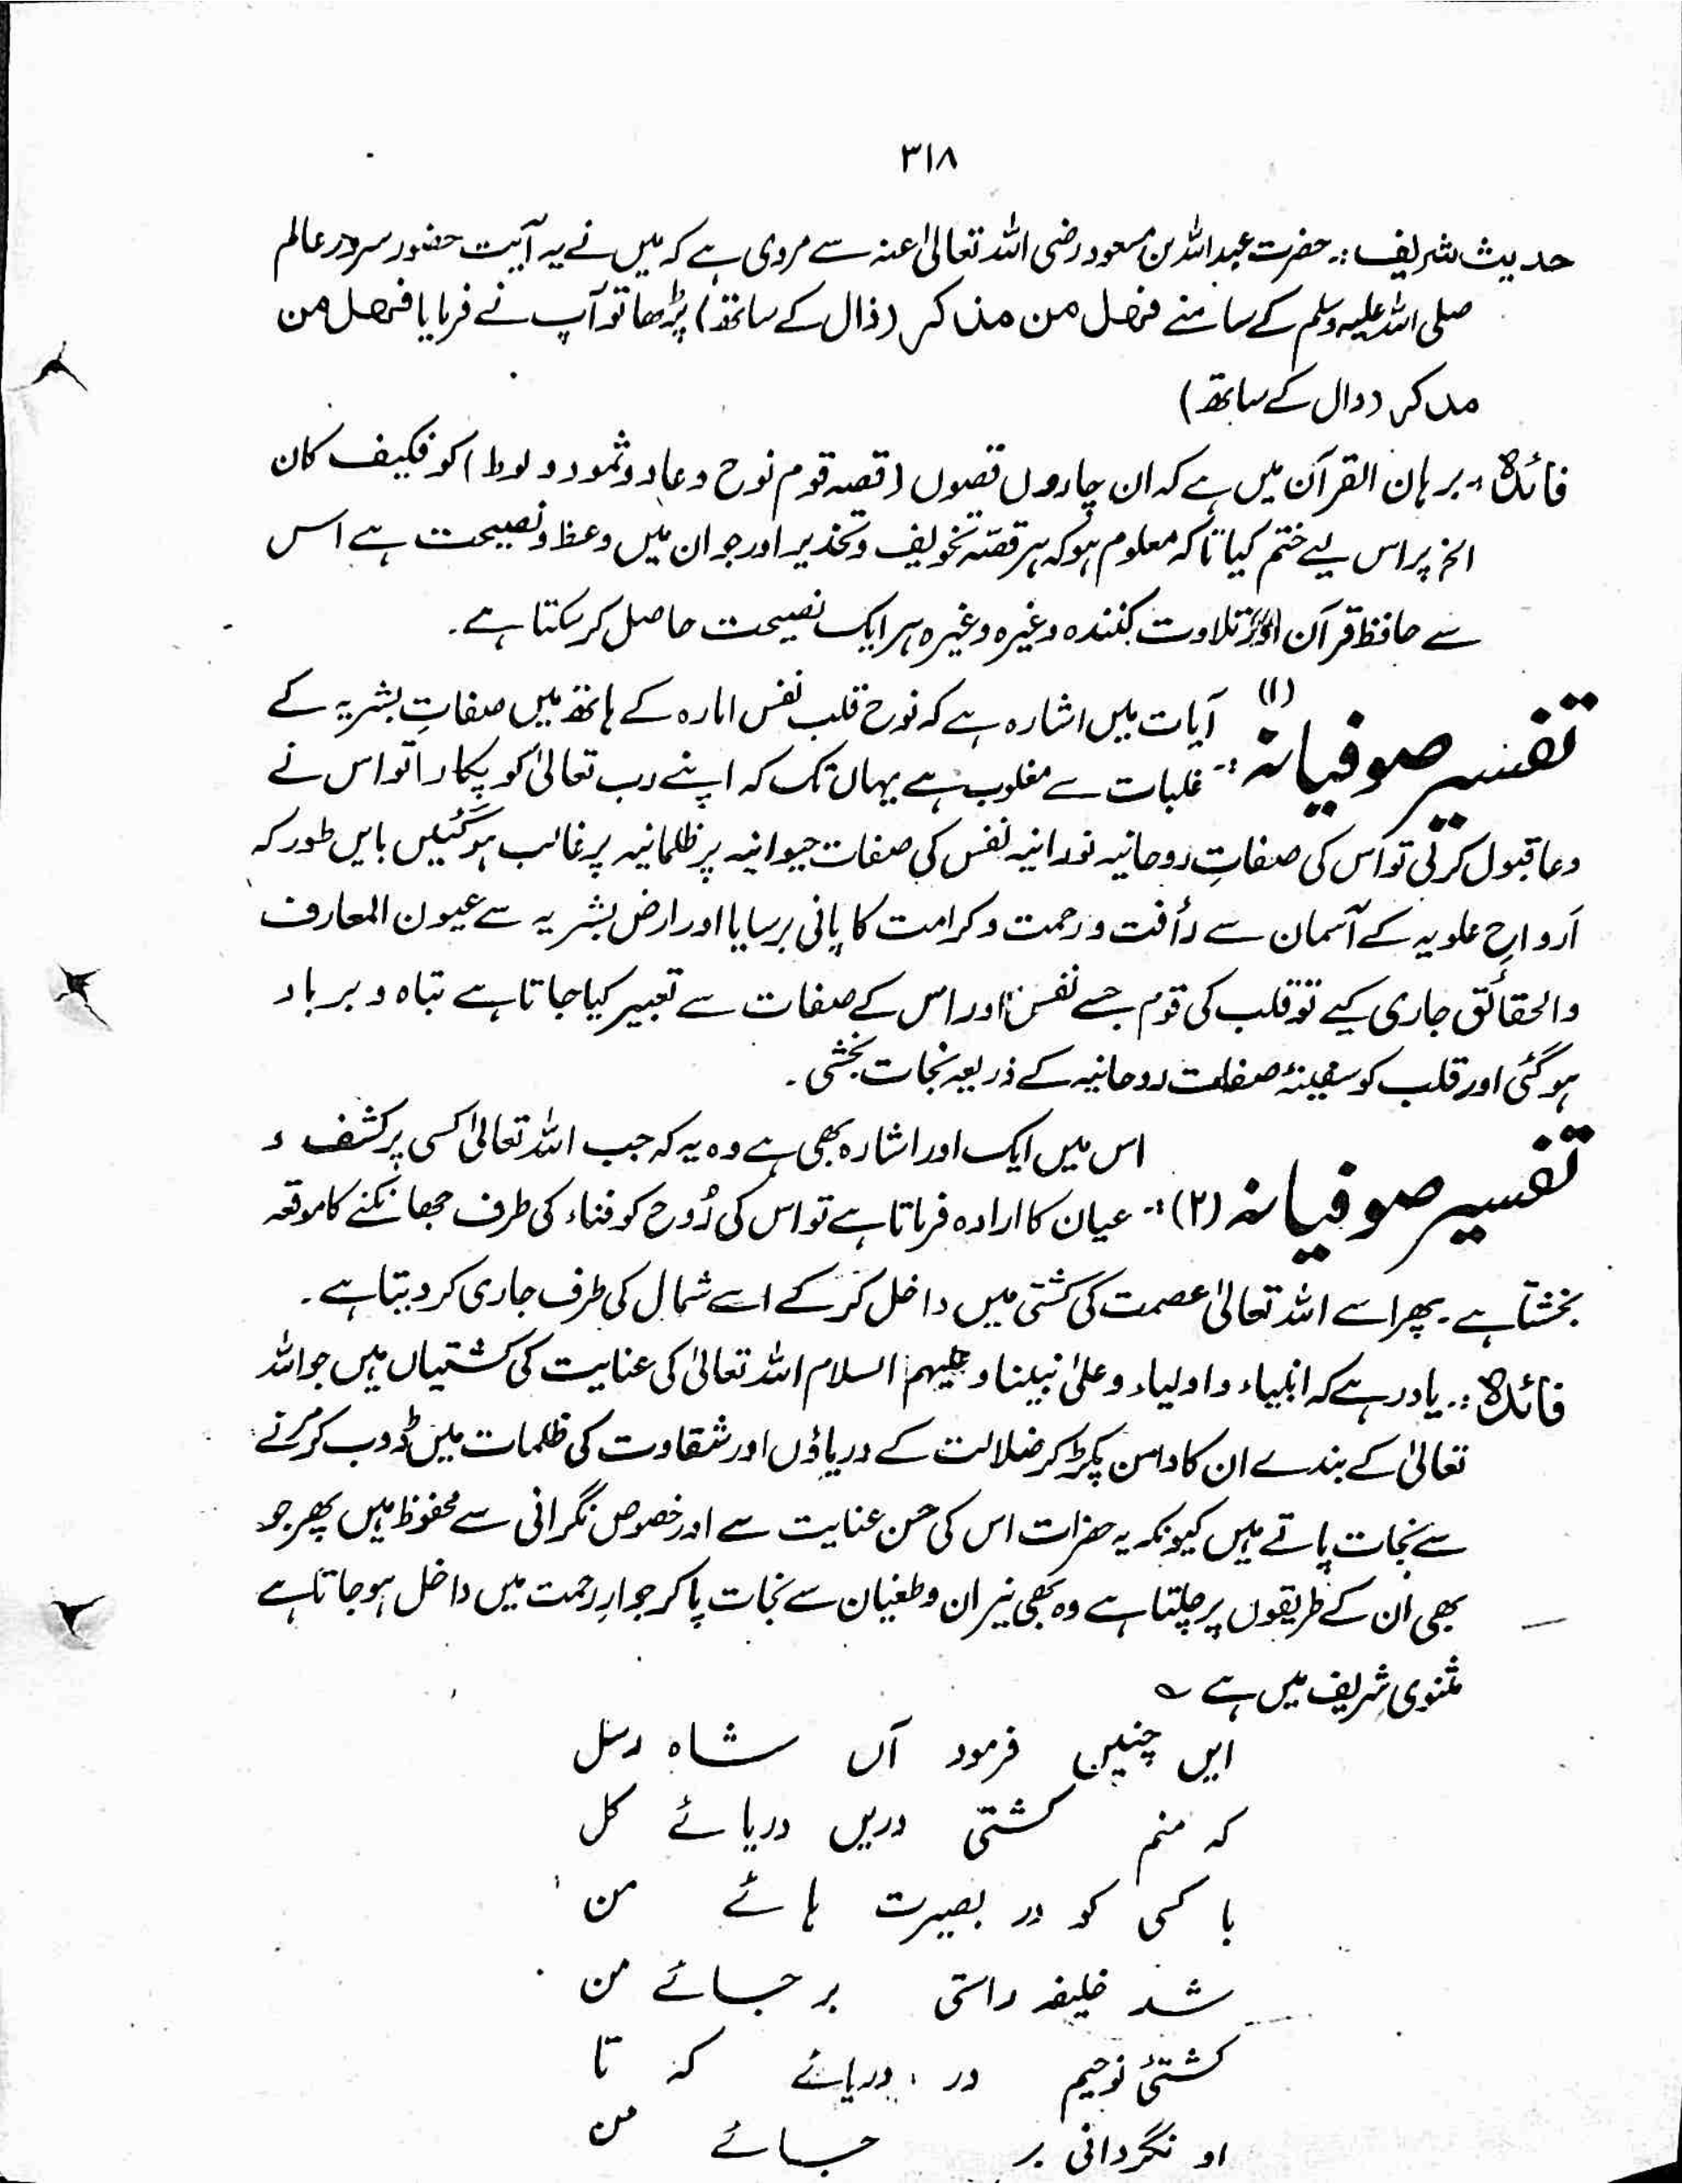 ۳۱۸
حدیث شریف :۔ حضرت عبداللہ بن مسعود رضی اللہ تعالیٰ عنہ سے مروی ہے کہ میں نے یہ آیت حضور سرور عالم
صلی اللہ علیہ وسلم کے سامنے فہل من مذکر (ذال کے ساتھ) پڑھا تو آپ نے فرمایا فہل من
مدکر (دال کے ساتھ)
فائدہ :۔ برہان القرآن میں ہے کہ ان چاروں قصوں (قصہ قوم نوح و عاد و ثمود و لوط) کو فکیف کان
الخ پر اس لیے ختم کیا تاکہ معلوم ہو کہ ہر قصّہ تخویف و تحذیر اور جو ان میں وعظ و نصیحت ہے اس
سے حافظ قرآن اور تلاوت کنندہ وغیرہ وغیرہ ہر ایک نصیحت حاصل کر سکتا ہے۔
تفسیر صوفیانہ (۱) :۔ آیات میں اشارہ ہے کہ نوح قلب نفس امارہ کے ہاتھ میں صفاتِ بشریہ کے
غلبات سے مغلوب ہے یہاں تک کہ اپنے رب تعالیٰ کو پکارا تو اس نے
دعا قبول کر لی تو اس کی صفاتِ روحانیہ نورانیہ نفس کی صفات حیوانیہ پر ظلمانیہ پر غالب ہو گئیں بایں طور کہ
اَرواحِ علویہ کے آسمان سے رأفت و رحمت و کرامت کا پانی برسایا اور ارض بشریہ سے عیون المعارف
والحقائق جاری کیے تو قلب کی قوم جسے نفس اور اس کے صفات سے تعبیر کیا جاتا ہے تباہ و برباد
ہو گئی اور قلب کو سفینۂ صفات روحانیہ کے ذریعہ نجات بخشی۔
تفسیر صوفیانہ (۲) :۔ اس میں ایک اور اشارہ بھی ہے وہ یہ کہ جب اللہ تعالیٰ کسی پر کشف و
عیان کا ارادہ فرماتا ہے تو اس کی رُوح کو فناء کی طرف جھانکنے کا موقعہ
بخشتا ہے۔ پھر اسے اللہ تعالیٰ عصمت کی کشتی میں داخل کر کے اسے شمال کی طرف جاری کر دیتا ہے۔
فائدہ :۔ یاد رہے کہ انبیاء و اولیاء و علیٰ نبینا و علیہم السلام اللہ تعالیٰ کی عنایت کی کشتیاں ہیں جو اللہ
تعالیٰ کے بندے ان کا دامن پکڑ کر ضلالت کے دریاؤں اور شقاوت کی ظلمات میں ڈوب کر مرنے
سے نجات پاتے ہیں کیونکہ یہ حضرات اس کی حسن عنایت سے اور خصوص نگرانی سے محفوظ ہیں پھر جو
بھی ان کے طریقوں پر چلتا ہے وہ بھی نیران و طغیان سے نجات پا کر جوارِ رحمت میں داخل ہو جاتا ہے
مثنوی شریف میں ہے ؎
ایں چنیں فرمود آں شاہ رسل
کہ منم کشتی دریں دریائے کل
با کسی کو در بصیرت ہائے من
شد خلیفہ راستی بر جائے من
کشتئ نوحیم در دریائے کہ تا
او نگردانی بر جائے من